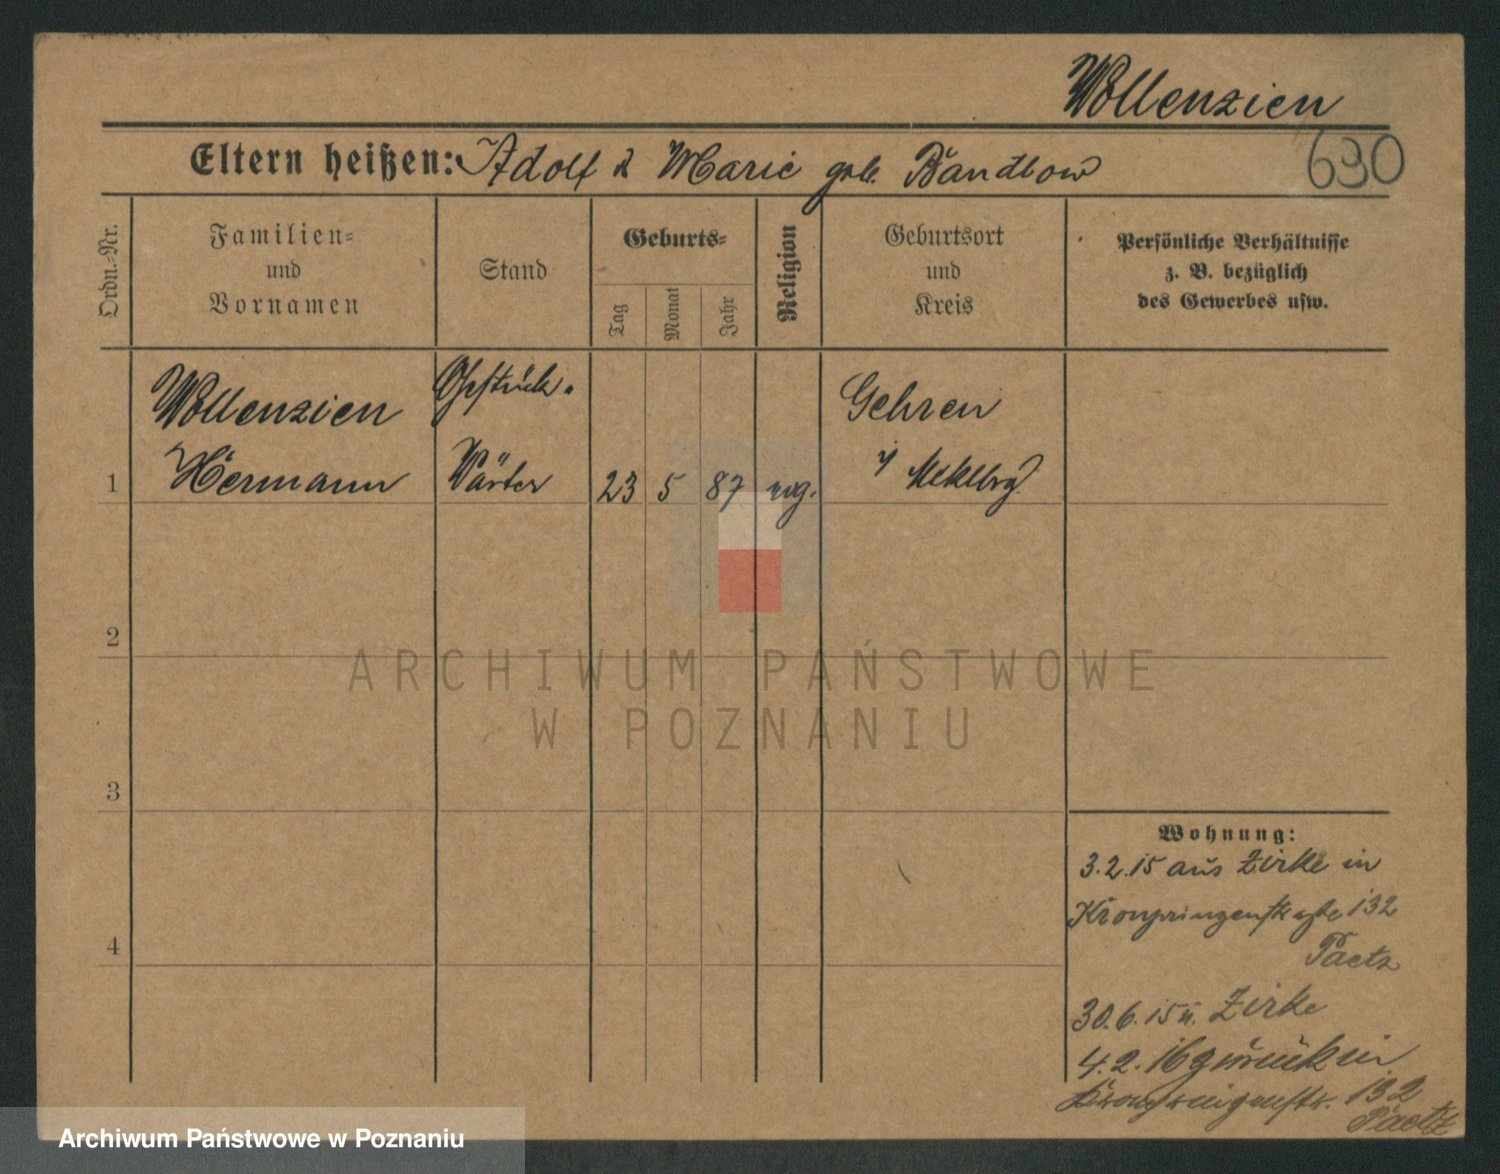 Wollenzien
630
Eltern heißen: Adolf & Marie geb. Bandlow
Ordn.-Nr.
Familien-
und
Vornamen
Stand
Geburts-
Tag
Monat
Jahr
Religion
Geburtsort
und
Kreis
Persönliche Verhältnisse
z. B. bezüglich
des Gewerbes usw.
1
Wollenzien
Hermann
Gestüt-
Wärter
23
5
87
evg.
Gehren
i/ Meklbrg.
2
3
4
ARCHIWUM PAŃSTWOWE
W POZNANIU
Wohnung:
3.2.15 aus Zirke in
Kronprinzenstraße 132
Paetz
30.6.15 n. Zirke
4.2.16 zurück in
Kronprinzenstr. 132
Paetz
Archiwum Państwowe w Poznaniu